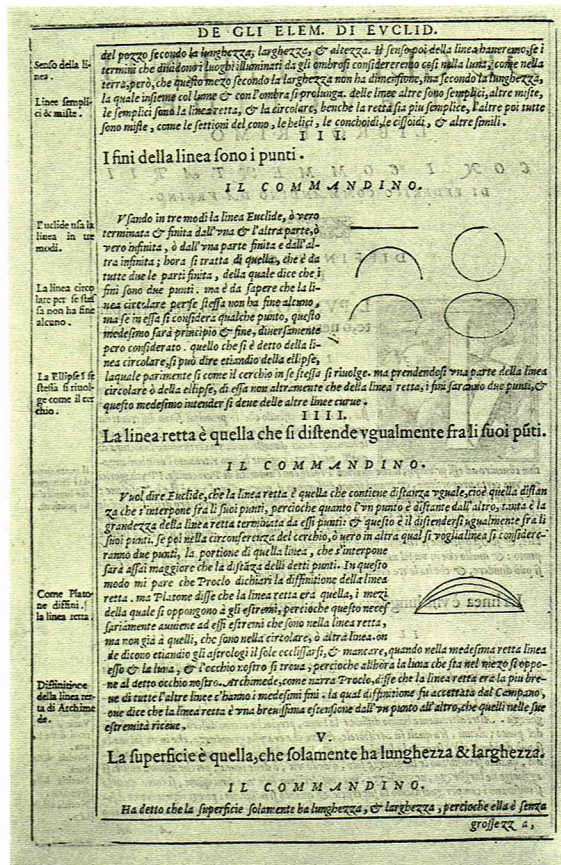 DE GLI ELEM. DI EVCLID.
Senso della linea.
del pozzo secondo la lunghezza, larghezza, & altezza. Il senso poi della linea haueremo, se i
termini che diuidono i luoghi illuminati da gli ombrosi considereremo cosi nella luna, come nella
terra, però, che questo mezo secondo la larghezza non ha dimensione, ma secondo la lunghezza,
Linee semplici & miste.
la quale insieme col lume & con l'ombra si prolunga. delle linee altre sono semplici, altre miste,
le semplici sono la linea retta, & la circolare, benche la retta sia piu semplice, l'altre poi tutte
sono miste, come le settioni del cono, le helici, le conchoidi, le cissoidi, & altre simili.
III.
I fini della linea sono i punti.
IL COMMANDINO.
Euclide usa la linea in tre modi.
Vsando in tre modi la linea Euclide, ò vero
terminata & finita dall'vna & l'altra parte, ò
vero infinita, ò dall'vna parte finita e dall'al-
tra infinita; hora si tratta di quella, che è da
tutte due le parti finita, della quale dice che i
fini sono due punti. ma è da sapere che la li-
La linea circolare per se stessa non ha fine alcuno.
nea circolare per se stessa non ha fine alcuno,
ma se in essa si considera qualche punto, questo
medesimo sarà principio & fine, diuersamente
pero considerato. quello che si è detto della li-
nea circolare, si può dire etiandio della ellipse,
La Ellipse i se stessa si riuolge come il cerchio.
laquale parimente si come il cerchio in se stessa si riuolge. ma prendendosi vna parte della linea
circolare ò della ellipse, di essa non altramente che della linea retta, i fini saranno due punti, &
questo medesimo intender si deue delle altre linee curue.
IIII.
La linea retta è quella che si distende vgualmente fra li suoi pūti.
IL COMMANDINO.
Vuol dire Euclide, che la linea retta è quella che contiene distanza vguale, cioè quella distan
za che s'interpone fra li suoi punti, percioche quanto l'vn punto è distante dall'altro, tanta è la
grandezza della linea retta terminata da essi punti: & questo è il distendersi ugualmente fra li
suoi punti. se poi nella circonferenza del cerchio, ò uero in altra qual si voglia linea si considere-
ranno due punti, la portione di quella linea, che s'interpone
sarà assai maggiore che la distāza delli detti punti. In questo
modo mi pare che Proclo dichiari la diffinitione della linea
Come Platone diffinì la linea retta.
retta. ma Platone disse che la linea retta era quella, i mezi
della quale si oppongono à gli estremi, percioche questo neces
sariamente auuiene ad essi estremi che sono nella linea retta,
ma non già à quelli, che sono nella circolare, ò altra linea. on
de dicono etiandio gli astrologi il sole ecclissarsi, & mancare, quando nella medesima retta linea
esso & la luna, & l'occhio nostro si troua; percioche allhora la luna che sta nel mezo si oppo-
Diffinitione della linea retta di Archimede.
ne al detto occhio nostro. Archimede, come narra Proclo, disse che la linea retta era la piu bre-
ue di tutte l'altre linee c'hanno i medesimi fini. la qual diffinitione fu accettata dal Campano,
oue dice che la linea retta è vna breuissima estensione dall'vn punto all'altro, che quelli nelle sue
estremità riceue.
V.
La superficie è quella, che solamente ha lunghezza & larghezza.
IL COMMANDINO.
Ha detto che la superficie solamente ha lunghezza, & larghezza, percioche ella è senza
grossezza,